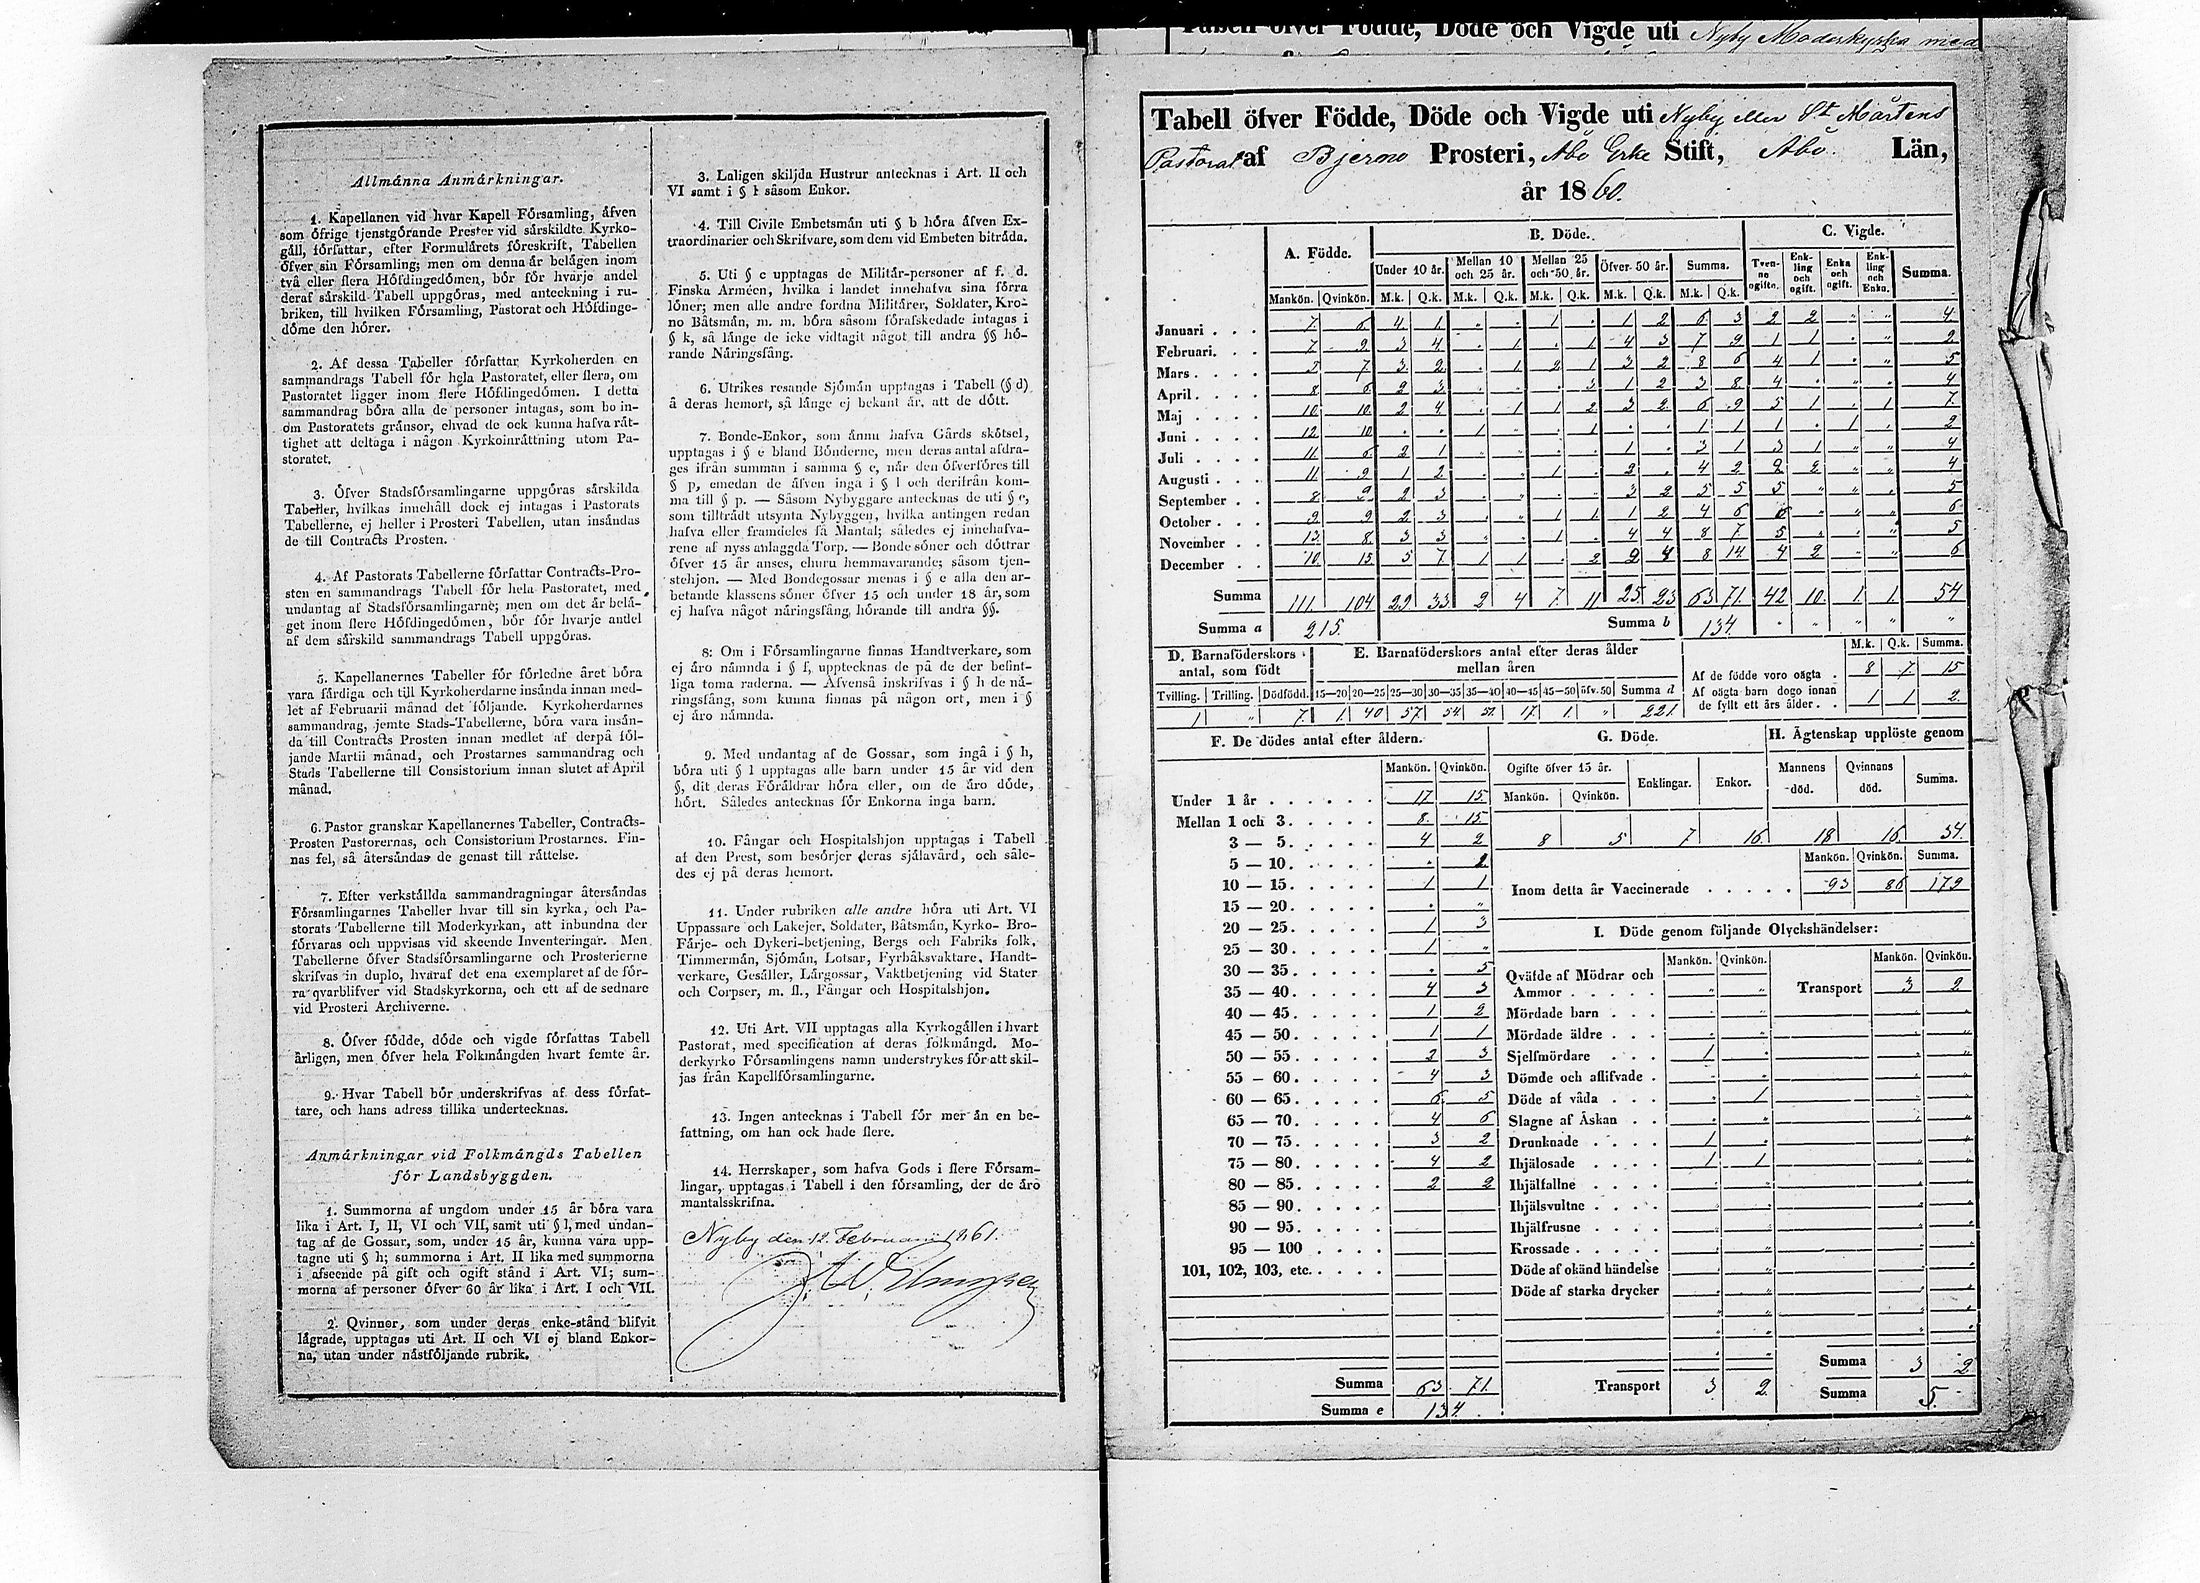 Allmänna Anmärkningar.
1. Kapellanen vid hvar Kapell Församling, äfven
som öfrige tjenstgörande Prester vid särskildte Kyrko-
gäll, författar, efter Formulärets föreskrift, Tabellen
öfver sin Församling; men om denna är belägen inom
två eller flera Höfdingedömen, bör för hvarje andel
deraf särskild Tabell uppgöras, med anteckning i ru-
briken, till hvilken Församling, Pastorat och Höfdinge-
döme den hörer.
2. Af dessa Tabeller författar Kyrkoherden en
sammandrags Tabell för hela Pastoratet, eller flera, om
Pastoratet ligger inom flere Höfdingedömen. I detta
sammandrag böra alla de personer intagas, som bo in-
om Pastoratets gränsor, ehvad de ock kunna hafva rät-
tighet att deltaga i någon Kyrkoinrättning utom Pa-
storatet.
3. Öfver Stadsförsamlingarne uppgöras särskilda
Tabeller, hvilkas innehåll dock ej intages i Pastorats
Tabellerne, ej heller i Prosteri Tabellen, utan insändas
de till Contracts Prosten.
4. Af Pastorats Tabellerne författar Contracts-Pro-
sten en sammandrags Tabell för hela Pastoratet, med
undantag af Stadsförsamlingarne; men om det är belä-
get inom flere Höfdingedömen, bör för hvarje andel
af dem särskild sammandrags Tabell uppgöras.
5. Kapellanernes Tabeller för förledne året böra
vara färdiga och till Kyrkoherdarne insända innan med-
let af Februarii månad det följande. Kyrkoherdarnes
sammandrag, jemte Stads-Tabellerne, böra vara insän-
da till Contracts Prosten innan medlet af derpå föl-
jande Martii månad, och Prostarnes sammandrag och
Stads Tabellerne till Consistorium innan slutet af April
månad.
6. Pastor granskar Kapellanernes Tabeller, Contracts-
Prosten Pastorernas, och Consistorium Prostarnes. Fin-
nas fel, så återsändas de genast till rättelse.
7. Efter verkställda sammandragningar återsändas
Församlingarnes Tabeller hvar till sin kyrka, och Pa-
storats Tabellerne till Moderkyrkan, att inbundna der
förvaras och uppvisas vid skeende Inventeringar. Men
Tabellerne öfver Stadsförsamlingarne och Prosterierne
skrifvas in duplo, hvaraf det ena exemplaret af de för-
ra qvarblifver vid Stadskyrkorna, och ett af de sednare
vid Prosteri Archiverne.
8. Öfver födde, döde och vigde författas Tabell
årligen, men öfver hela Folkmängden hvart femte år.
9. Hvar Tabell bör underskrifvas af dess förfat-
tare, och hans adress tillika undertecknas.
Anmärkningar vid Folkmängds Tabellen
för Landsbyggden.
1. Summorna af ungdom under 15 år böra vara
lika i Art. I, II, VI och VII, samt uti § l, med undan-
tag af de Gossar, som, under 15 år, kunna vara upp-
tagne uti § h; summorna i Art. II lika med summorna
i afseende på gift och ogift stånd i Art. VI; sum-
morna af personer öfver 60 år lika i Art. I och VII.
2. Qvinnor, som under deras enke-stånd blifvit
lägrade, upptagas uti Art. II och VI ej bland Enkor-
na, utan under nästföljande rubrik.
3. Laligen skiljda Hustrur antecknas i Art. II och
VI samt i § l såsom Enkor.
4. Till Civile Embetsmän uti § b höra äfven Ex-
traordinarier och Skrifvare, som dem vid Embeten biträda.
5. Uti § c upptagas de Militär-personer af f. d.
Finska Arméen, hvilka i landet innehafva sina förra
löner; men alle andre fordna Militärer, Soldater, Kro-
no Båtsmän, m. m. böra såsom förafskedade intagas i
§ k, så länge de icke vidtagit något till andra §§ hö-
rande Näringsfång.
6. Utrikes resande Sjömän upptagas i Tabell (§ d)
å deras hemort, så länge ej bekant är, att de dött.
7. Bonde-Enkor, som ännu hafva Gårds skötsel,
upptagas i § e bland Bönderne, men deras antal afdra-
ges ifrån summan i samma § e, när den öfverföres till
§ p, emedan de äfven ingå i § l och derifrån kom-
ma till § p. — Såsom Nybyggare antecknas de uti § e,
som tillträdt utsynta Nybyggen, hvilka antingen redan
hafva eller framdeles få Mantal; således ej innehafva-
rene af nyss anlaggda Torp. — Bonde söner och döttrar
öfver 15 år anses, ehuru hemmavarande; såsom tjen-
stehjon. — Med Bondegossar menas i § e alla den ar-
betande klassens söner öfver 15 och under 18 år, som
ej hafva något näringsfång, hörande till andra §§.
8: Om i Församlingarne finnas Handtverkare, som
ej äro nämnda i § f, upptecknas de på de der befint-
liga toma raderna. — Äfvenså inskrifvas i § h de nä-
ringsfång, som kunna finnas på någon ort, men i §
ej äro nämnda.
9. Med undantag af de Gossar, som ingå i § h,
böra uti § l upptagas alle barn under 15 år vid den
§, dit deras Föräldrar höra eller, om de äro döde,
hört. Således antecknas för Enkorna inga barn.
10. Fångar och Hospitalshjon upptagas i Tabell
af den Prest, som besörjer deras själavård, och såle-
des ej på deras hemort.
11. Under rubriken alle andre höra uti Art. VI
Uppassare och Lakejer, Soldater, Båtsmän, Kyrko- Bro-
Färje- och Dykeri-betjening, Bergs och Fabriks folk,
Timmermän, Sjömän, Lotsar, Fyrbåksvaktare, Handt-
verkare, Gesäller, Lärgossar, Vaktbetjening vid Stater
och Corpser, m. fl., Fångar och Hospitalshjon.
12. Uti Art. VII upptagas alla Kyrkogällen i hvart
Pastorat, med specification af deras folkmängd. Mo-
derkyrko Församlingens namn understrykes för att skil-
jas från Kapellförsamlingarne.
13. Ingen antecknas i Tabell för mer än en be-
fattning, om han ock hade flere.
14. Herrskaper, som hafva Gods i flere Försam-
lingar, upptagas i Tabell i den församling, der de äro
mantalsskrifna.
Nyby den 12. Februarii 1861.
Tabell öfver Födde, Döde och Vigde uti Nyby Moderkyrka med
Tabell öfver Födde, Döde och Vigde uti Nyby eller St Mårtens
Pastorat af Bjerno Prosteri, Åbo Erke Stift, Åbo Län,
år 1860.
A. Födde. B. Döde. C. Vigde.
Under 10 år. Mellan 10 och 25 år. Mellan 25 och 50 år. Öfver 50 år. Summa. Tvenne ogifte. Enkling och ogift. Enka och ogift. Enkling och Enka. Summa.
Mankön. Qvinkön. M.k. Q.k. M.k. Q.k. M.k. Q.k. M.k. Q.k. M.k. Q.k.
Januari . . . 7. 6 4 1. „ . 1 . 1 2 6 3 2 2 „ „ 4.
Februari. . . 7 9 3 4 . 1 . 1 4 3 7 9 1 1 . „ 2
Mars . . . . 3 7 3 2 . 1 2 1 3 2 8 6 4 1 . „ 5
April . . . . 8 6 2 3 . . . 3 1 2 3 8 4 . „ . 4
Maj . . . . 10 10 2 4 . 1 1 2 3 2 6 9 5 1 . 1 7.
Juni . . . . 12 10 . . 1 „ . 1 . . 1 1 1 . 1 . 2
Juli . . . . 11 6 2 1 „ „ . . 1 . 3 1 3 1 „ „ 4
Augusti . . . 11 9 1 2 . . 1 . 2 . 4 2 2 2 „ „ 4
September . . 8 9 2 3 . „ . . 3 2 5 5 5 „ „ . 5
October . . . 9 9 2 3 . „ 1 1 1 2 4 6 6 „ „ „ 6
November . . 13 8 3 3 „ . 1 . 4 4 8 7 5 . . „ 5
December . . 10 15 5 7 1 1 . 2 2 4 8 14 4 2 „ „ 6
Summa 111 104 29 33 2 4 7. 11 25 23 63 71. 42 10. 1 1. 54
Summa a 215. Summa b 134.
D. Barnaföderskors antal, som födt
E. Barnaföderskors antal efter deras ålder mellan åren
M.k. Q.k. Summa.
Af de födde voro oägta . 8 7. 15
Af oägta barn dogo innan
de fyllt ett års ålder . . 1 1 2.
Tvilling. Trilling. Dödfödd. 15—20 20—25 25—30 30—35 35—40 40—45 45—50 öfv. 50 Summa d
1 „ 7. 1. 40 57 54 51. 17. 1. „ 221.
F. De dödes antal efter åldern.
Mankön. Qvinkön.
Under 1 år . . . . . . 17 15.
Mellan 1 och 3 . . . . . 8. 15.
3 — 5 . . . . . 4 2
5 — 10 . . . . . . 2
10 — 15 . . . . . 1 1
15 — 20 . . . . . . „
20 — 25 . . . . . 1 3
25 — 30 . . . . . 1 „
30 — 35 . . . . . . 5
35 — 40 . . . . . 4 3
40 — 45 . . . . . 1 2
45 — 50 . . . . . 1 1
50 — 55 . . . . . 2 3
55 — 60 . . . . . 4 3
60 — 65 . . . . . 6 5
65 — 70 . . . . . 4 6
70 — 75 . . . . . 3 2
75 — 80 . . . . . 4 2
80 — 85 . . . . . 2 2
85 — 90 . . . . .
90 — 95 . . . . .
95 — 100 . . . .
101, 102, 103, etc. . . . .
Summa 63 71.
Summa e 134.
G. Döde.
Ogifte öfver 15 år. Enklingar. Enkor.
Mankön. Qvinkön.
8 5 7 16
H. Ägtenskap upplöste genom
Mannens död. Qvinnans död. Summa.
18 16 34.
Mankön. Qvinkön. Summa.
Inom detta år Vaccinerade . . . . . 93 86 179
I. Döde genom följande Olyckshändelser:
Mankön. Qvinkön. Mankön. Qvinkön.
Qväfde af Mödrar och
Ammor . . . . . „ „ Transport 3 2
Mördade barn . . . . „
Mördade äldre . . . . „
Sjelfmördare . . . 1 .
Dömde och aflifvade . . „
Döde af våda . . . . 1
Slagne af Åskan . . . „
Drunknade . . . . 1 .
Ihjälosade . . . . 1 1
Ihjälfallne . . . .
Ihjälsvultne . . . .
Ihjälfrusne . . . .
Krossade . . . . .
Döde af okänd händelse
Döde af starka drycker
Summa 3 2
Transport 3 2. Summa 5.